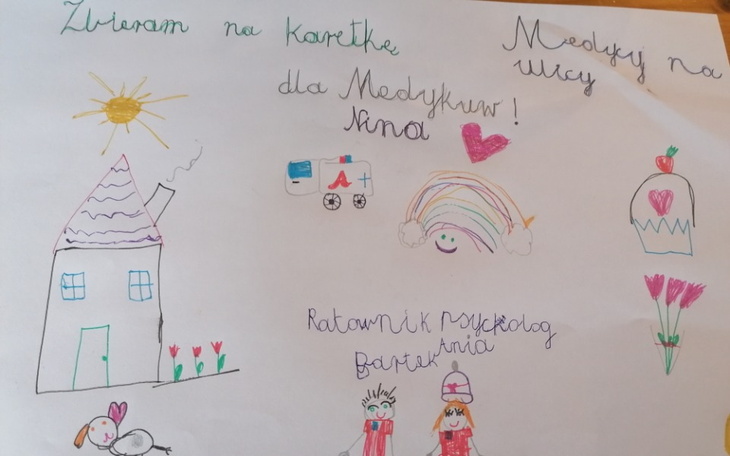 Zbieram na karetkę
Medycy na
ulicy
dla Medykuw!
Nina
A+
Ratownik psycholog
Bartek Ania